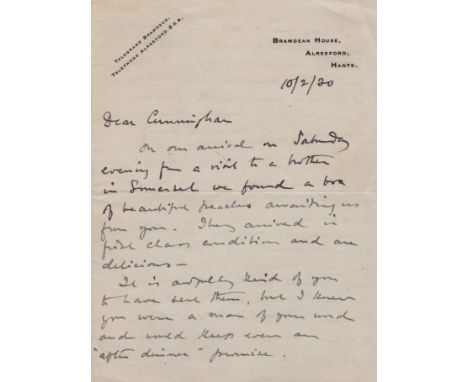 TELEGRAMS BRAMDEAN.
TELEPHONE ALRESFORD 2X4.
BRAMDEAN HOUSE,
ALRESFORD,
HANTS.
10/2/30
Dear Cunningham
On our arrival on Saturday
evening from a visit to a brother
in Somerset we found a box
of beautiful peaches awaiting us
from you. They arrived in
first class condition and are
delicious —
It is awfully kind of you
to have sent them, but I knew
you were a man of your word
and would keep even an
"after dinner" promise.